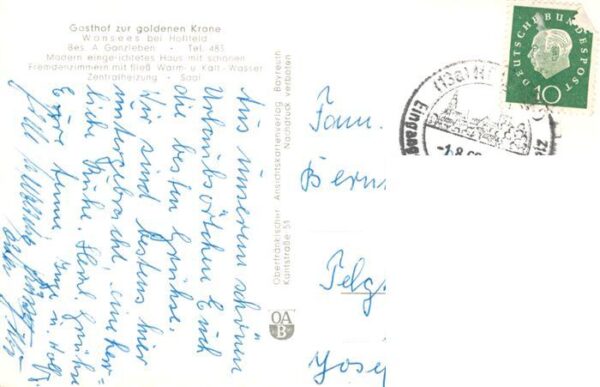 Gasthof zur goldenen Krone
Wonsees bei Hollfeld
Bes. A. Ganzleben - Tel. 485
Modern eingerichtetes Haus mit schönen
Fremdenzimmern mit fließ. Warm- u. Kalt-Wasser
Zentralheizung - Saal
Aus unserem schönen
Urlaubsörtchen Euch
die besten Grüße.
Wir sind bestens hier
untergebracht, eine herr-
liche Ruhe. Herzl. Grüße
Eure
Oberfränkischer Ansichtskartenverlag Bayreuth
Kantstraße 51 Nachdruck verboten
OA
B
DEUTSCHE BUNDESPOST
10
(13a)
Eingang
Fam.
Bern
Telg
Josep